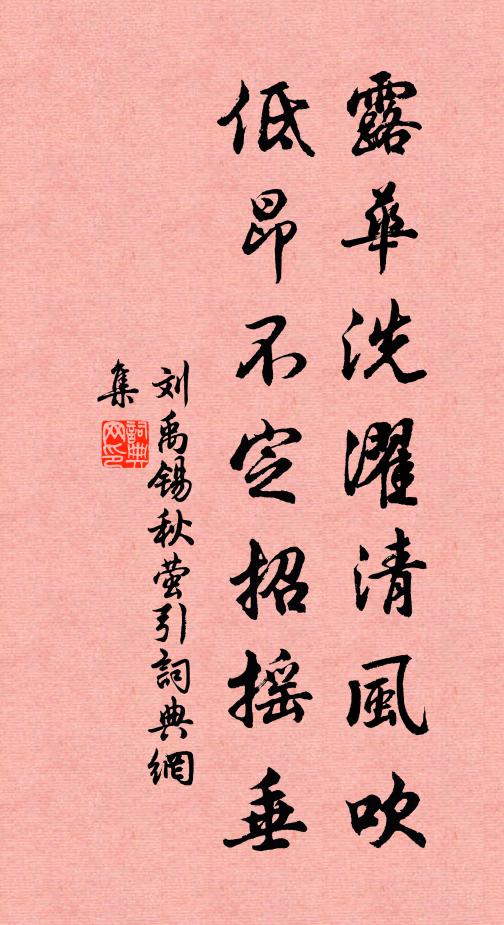 露華洗濯清風吹
低昂不定招摇垂
刘禹锡秋萤引詞典網
集
詞典
网印